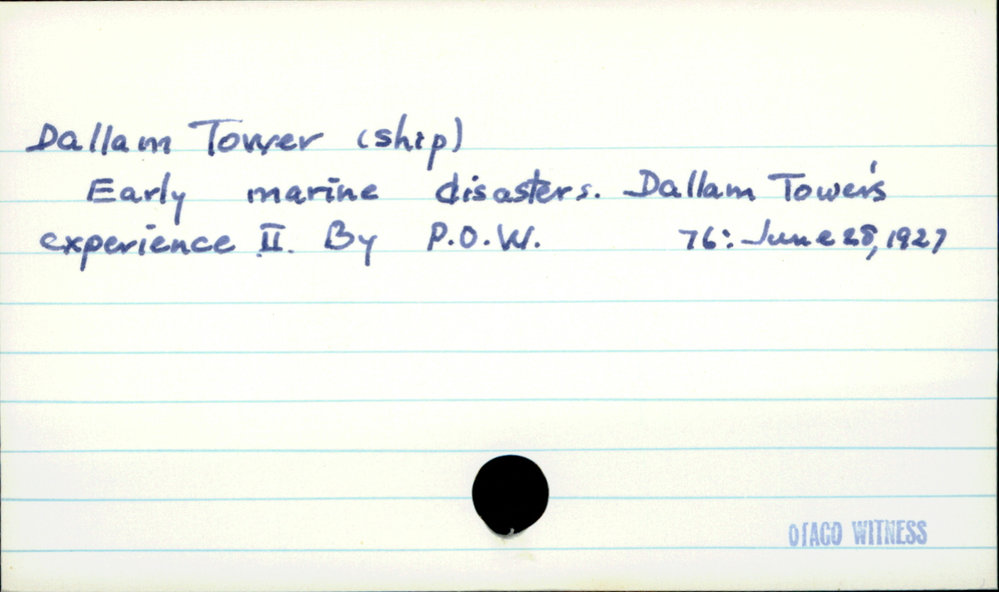 Dallam Tower (ship)
Early marine disasters. Dallam Tower's
experience II. By P.O.W. 76: June 28, 1927
OTAGO WITNESS